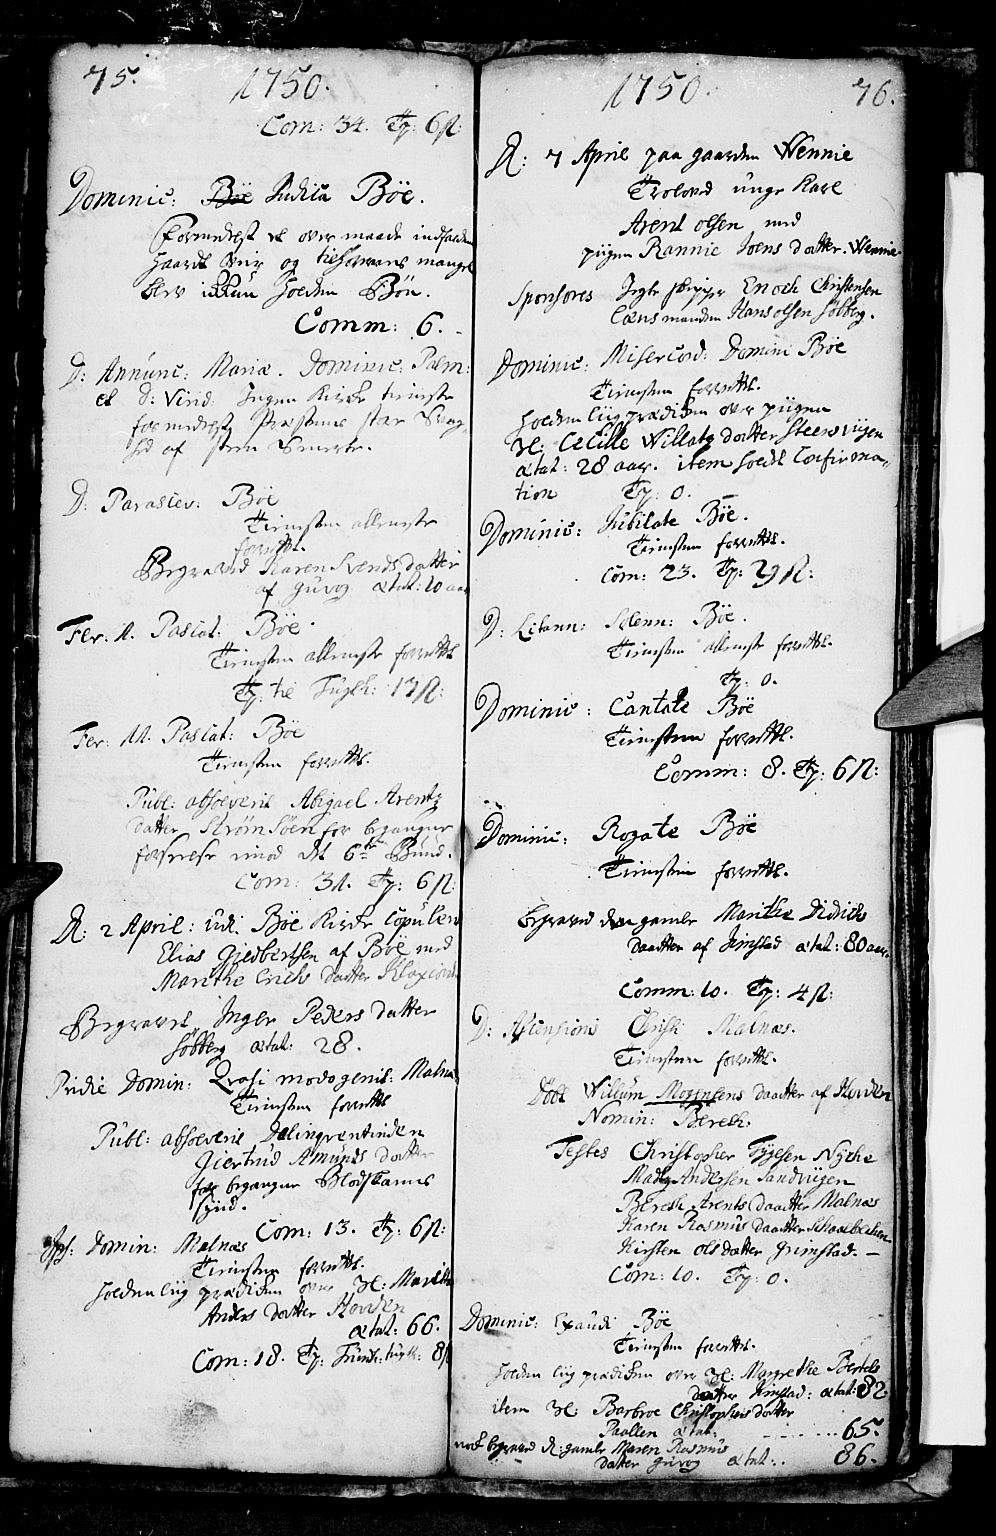 75.
1750.
Com: 34. Tp: 6ß:
Dominic: Böe Judica Böe.
Formedelst et over maade indfalden
haardt Veir og tilhörernes mangel
blev ickun holden Bön.
Comm: 6.
D: Annunc: Mariæ. Dominic: Palm:
et D: Virid: Ingen Kirke tieniste
formedelst Præstens
af Smerte.
D: Parascev: Böe
Tienisten alleeniste
forrettet.
Begraved Karen Svends datter
af Guvog ætat: 10 aar
Fer: 1. Pascat: Böe.
Tienisten alleeniste forrettet
Tp: til Sygeh: 13ß:
Fer: 11. Pascat: Böe
Tienisten forrettet.
Publ: absolverit Abigael Arentz
datter StrömSöen for begangne
forseelse imod det 6te Bund.
Com: 31. Tp: 6ß:
D: 2 April: udi Böe Kirke copuleret
Elias Giedbertsen af Böe med
Marithe Erichs datter
Begravet Inger Peders datter
Söbberg ætat: 28.
Pridie Domin: Qvasi modogenit: Malnæs
Tienisten forrettet
Publ: absolverit Delinqventinden
Giertrud Amunds datter
for begangne Blodskams
synd.
Com: 13. Tp: 6ß:
Ips: Domin: Malnæs
Tienisten forrettet.
holden liig prædiken over Sl: Marith
Anders datter Hovden
ætat: 66.
Com: 18. Tp: 8ß
1750.
76.
D: 7 April paa gaarden Wennie
Troloved unge Karl
Arent olsen med
piigen Rannie Joens datter. Wennie
Sponsores Enoch Christensen
Lænsmanden Hans olsen Söbberg.
Dominic: Misericord: Domini Böe
Tienisten forrettet.
holden liigprædiken over piigen
Sl: Cecille Willatz datter Steensviigen
ætat: 28 aar. item holdt Confirma,
tion Tp: 0.
Dominic: Jubilate Böe.
Tienisten forrettet.
Com: 23. Tp: 29ß:
D: Litann: Solenn: Böe.
Tienisten alleeniste forrettet.
Tp: 0.
Dominic: Cantate Böe
Tienisten forrettet.
Comm: 8. Tp: 6ß:
Dominic: Rogate Böe
Tienisten forrettet.
Begraved den gamle Marithe Didrichs
daatter af Jimstad ætat: 80 aar.
Comm: 10. Tp: 4ß:
D: Ascensioni Christi Malnæs.
Tienisten forrettet.
Döbt Willum Mogensens daatter af Hovden
Nomin: Bereth.
Testes Christopher Nyche
Madtz Andersen Sandviigen
Bereth Arents daatter Malnæs
Karen Rasmus daatter
Kirsten ols datter Grimstad. —
Com: 10. Tp: 0.
Dominic: Exaudi Böe
Tienisten forrettet.
holden liig prædiken over Sl: Margrethe Bertels
datter Jimstad: ætat: 82.
item Sl: Barbroe Christophers datter
Paallen ætat: ........ 65.
nock begraved d: gamle Maren Rasmus
datter Guvog ætat: . 86.